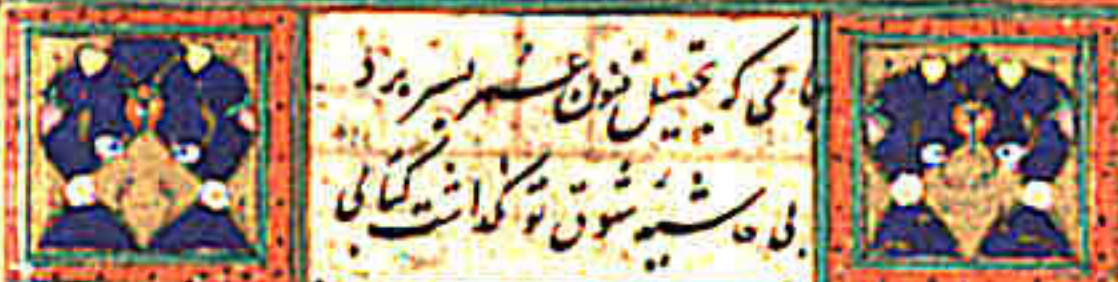 باقی که بتحصیل فنون عمر بسر برد
بی حاشیهٔ شوق تو نگذاشت کتابی